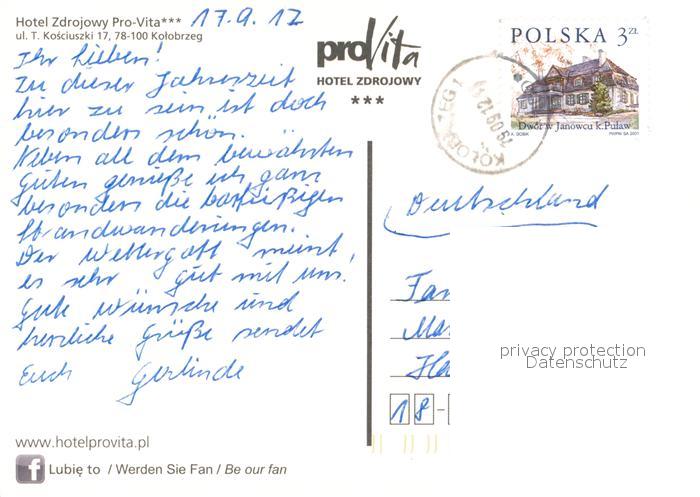 Hotel Zdrojowy Pro-Vita***
ul. T. Kościuszki 17, 78-100 Kołobrzeg
17.9.12
Ihr Lieben!
Zu dieser Jahreszeit
hier zu sein ist doch
besonders schön.
Neben all dem bewährten
Guten genieße ich ganz
besonders die barfüßigen
Strandwanderungen.
Der Wettergott meint,
es sehr gut mit uns.
Gute Wünsche und
herzliche Grüße sendet
Euch Gerlinde
www.hotelprovita.pl
f Lubię to / Werden Sie Fan / Be our fan
proVita
HOTEL ZDROJOWY
***
POLSKA 3 ZŁ
Dwór w Janowcu k.Puław
PWPW SA 2001
KOŁOBRZEG 1
Deutschland
Fam
Ma
Ha
18-
privacy protection
Datenschutz